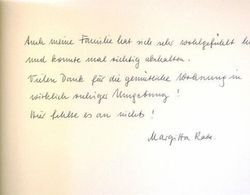 Auch meine Familie hat sich sehr wohlgefühlt
und konnte mal richtig abschalten.
Vielen Dank für die gemütliche Wohnung in
wirklich ruhiger Umgebung!
Hier fehlte es an nichts!
Margitta